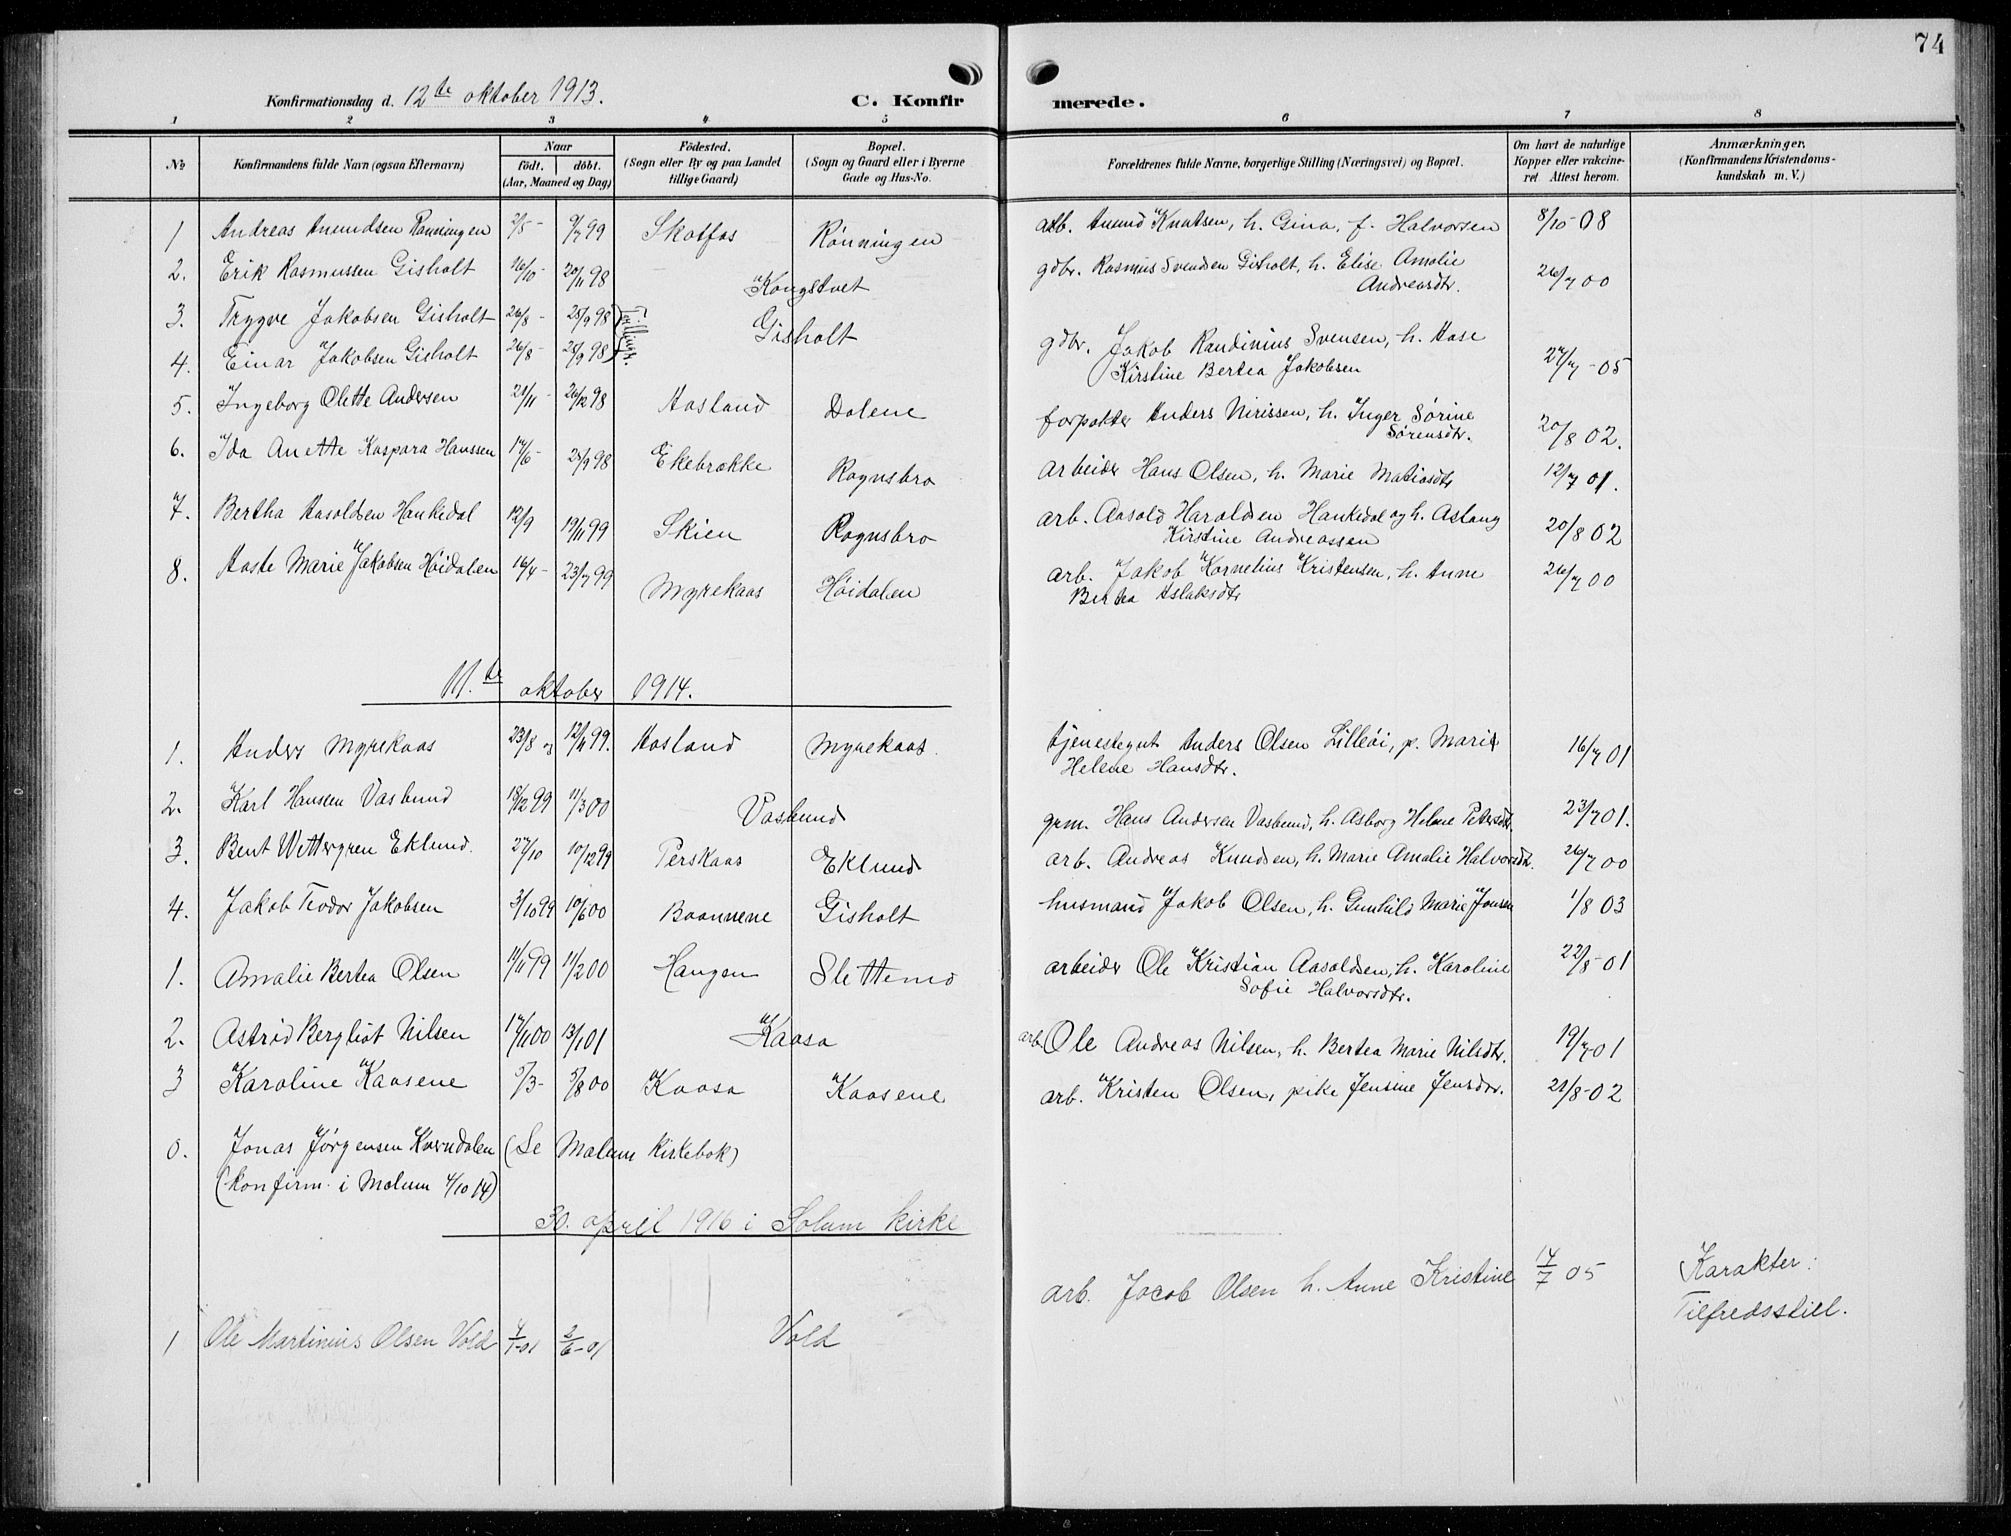 74
Konfirmationsdag d. 12te oktober 1913. C. Konfirmerede.
1 2 3 4 5 6 7 8
No Konfirmandens fulde Navn (ogsaa Efternavn) Naar født. døbt. (Aar, Maaned og Dag) Fødested. (Sogn eller By og paa Landet tillige Gaard) Bopæl. (Sogn og Gaard eller i Byerne Gade og Hus-No. Forældrenes fulde Navne, borgerlige Stilling (Næringsvei) og Bopæl. Om havt de naturlige Kopper eller vakcineret Attest herom. Anmærkninger, (Konfirmandens Kristendomskundskab m. V.)
1 Andreas Anundsen Rønningen 2/5 - 9/7 99 Skotfos Rønningen arb. Anund Knutsen, h. Gina, f. Halvorsen 8/10 - 08
2. Erik Rasmussen Gisholt 16/10 - 20/11 98 Kongstvet gdbr. Rasmus Svendsen Gisholt, h. Elise Amalie
Andreasdtr. 26/7 00
3. Trygve Jakobsen Gisholt 26/8 - 25/9 98 Tvillinger. Gisholt gdbr. Jakob Randinius Svensen, h. Aase
4. Einar Jakobsen Gisholt 26/8 - 25/9 98 Kirstine Bertea Jakobsen 27/7 - 05
5. Ingeborg Olette Andersen 21/11 - 26/12 98 Aasland Dalene forpakter Anders Nirissen, h. Inger Sørine
Sørensdtr. 20/8 02.
6. Ida Anette Kaspara Hanssen 17/6 - 25/9 98 Ekebrokke Rognsbro arbeider Hans Olsen, h. Marie Matiasdtr 12/7 01.
7. Bertha Aasoldsen Hankedal 12/9 19/11 99 Skien Rognsbro arb. Aasold Haroldsen Hankedal og h. Aslaug
Kirstine Andreassen 20/8 02
8. Aaste Marie Jakobsen Høidalen 16/4 - 23/7 99 Myrekaas Høidalen arb. Jakob Kornelius Kristensen, h. Anne
Bertea Aslaksdtr 26/7 00
11.te oktober 1914.
1. Anders Myrekaas 23/8 og 12/11 99. Aasland Myrekaas. tjenestegut Anders Olsen Lilleøi, p. Marie
Helene Hansdtr. 16/7 01
2. Karl Hansen Vasbund 18/12 99 11/3 00 Vasbund grm. Hans Andersen Vasbund, h. Asborg Helene Petersdtr. 23/7 01.
3. Bent Wettergren Eklund. 27/10 10/12 99 Perskaas Eklund arb. Andreas Knudsen, h. Marie Amalie Halvorsdtr. 26/7 00
4. Jakob Teodor Jakobsen 3/10 99 10/6 00 Baannene Gisholt husmand Jakob Olsen, h. Gunhild Marie Jonsen 1/8 03
1. Amalie Bertea Olsen 11/11 99 11/2 00 Haugen Slettemo arbeider Ole Kristian Aasoldsen, h. Karoline
Sofie Halvorsdtr. 22/8 - 01
2. Astrid Bergliot Nilsen 17/11 00 13/1 01 Kaasa arb. Ole Andreas Nilsen, h. Bertea Marie Nilsdtr. 19/7 - 01
3 Karoline Kaasene 5/3 - 5/8 00 Kaasa Kaasene arb. Kristen Olsen, pike Jensine Jensdtr. 21/8 - 02
0. Jonas Jørgensen Kverndalen (Se Melum Kirkebok)
(konfirm. i Melum 4/10 14)
30. april 1916 i Solum kirke
1 Ole Martinius Olsen Vold 4/1-01 2/6-01 Vold arb. Jacob Olsen h. Anne Kristine 17/7 05 Karakter:
Tilfredsstill.